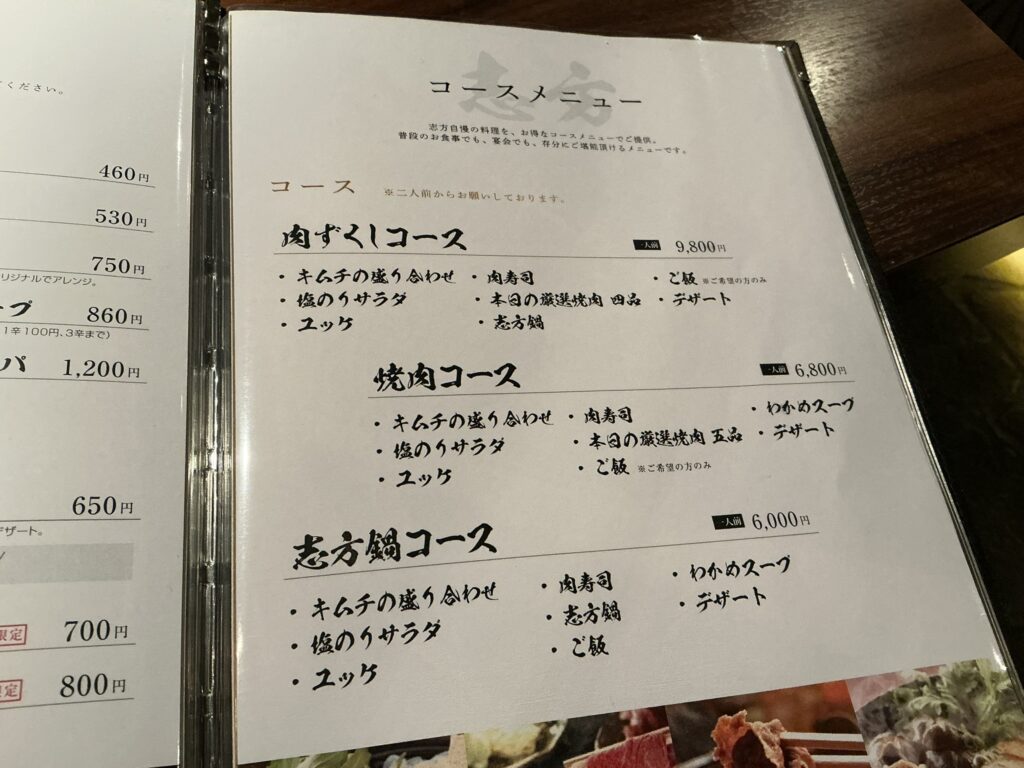 ください。
460円
530円
750円
リジナルでアレンジ。
ープ 860円
1辛100円、3辛まで)
パ 1,200円
650円
デザート。
限定 700円
限定 800円
志方
コースメニュー
志方自慢の料理を、お得なコースメニューでご提供。
普段のお食事でも、宴会でも、存分にご堪能頂けるメニューです。
コース ※二人前からお願いしております。
肉ずくしコース 一人前 9,800円
・キムチの盛り合わせ ・肉寿司 ・ご飯 ※ご希望の方のみ
・塩のりサラダ ・本日の厳選焼肉 四品 ・デザート
・ユッケ ・志方鍋
焼肉コース 一人前 6,800円
・キムチの盛り合わせ ・肉寿司 ・わかめスープ
・塩のりサラダ ・本日の厳選焼肉 五品 ・デザート
・ユッケ ・ご飯 ※ご希望の方のみ
志方鍋コース 一人前 6,000円
・キムチの盛り合わせ ・肉寿司 ・わかめスープ
・塩のりサラダ ・志方鍋 ・デザート
・ユッケ ・ご飯